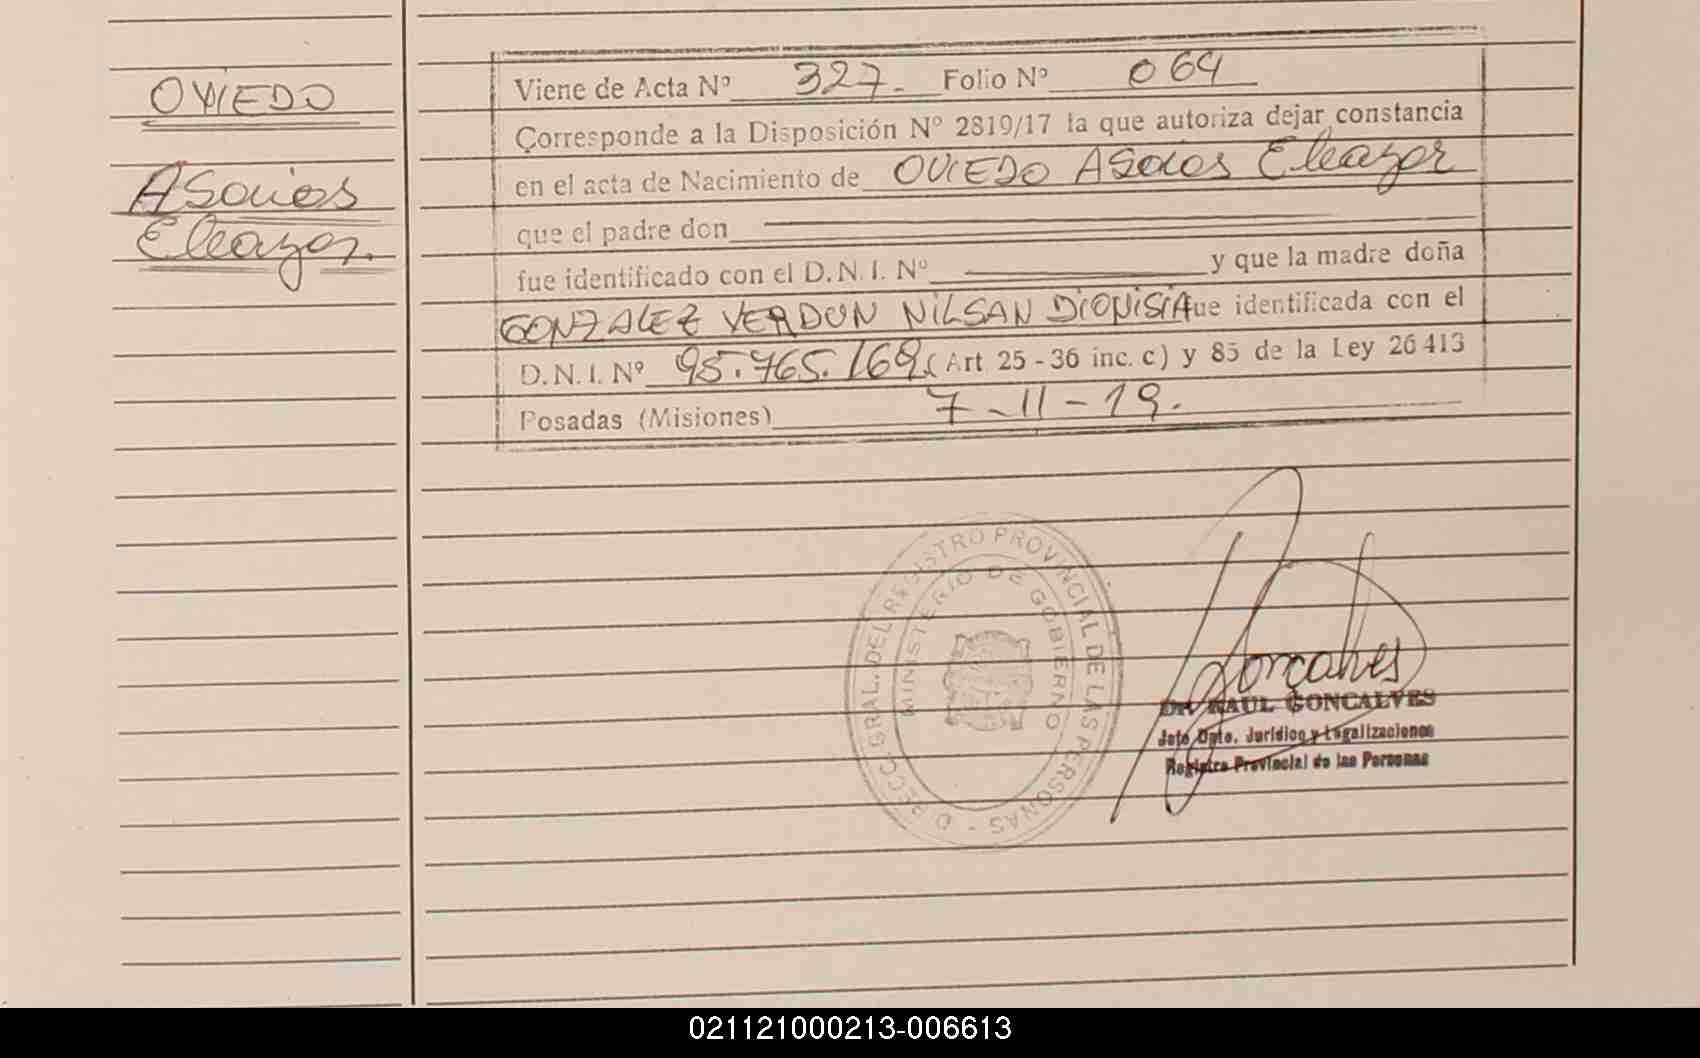 OVIEDO
Asocios
Eleazor.
Viene de Acta Nº 327. Folio Nº 064
Corresponde a la Disposición Nº 2819/17 la que autoriza dejar constancia
en el acta de Nacimiento de OVIEDO ASocios Eleazor
que el padre don
fue identificado con el D.N.I. Nº y que la madre doña
GONZALEZ VERDUN NILSAN DIONISIA fue identificada con el
D.N.I. Nº 95.765.169. (Art 25-36 inc. c) y 85 de la Ley 26413
Posadas (Misiones) 7-11-19.
DIRECC. GRAL. DEL REGISTRO PROVINCIAL DE LAS PERSONAS -
MINISTERIO DE GOBIERNO
Goncalves
Dr. RAUL GONCALVES
Jefe Dpto. Jurídico y Legalizaciones
Registro Provincial de las Personas
021121000213-006613